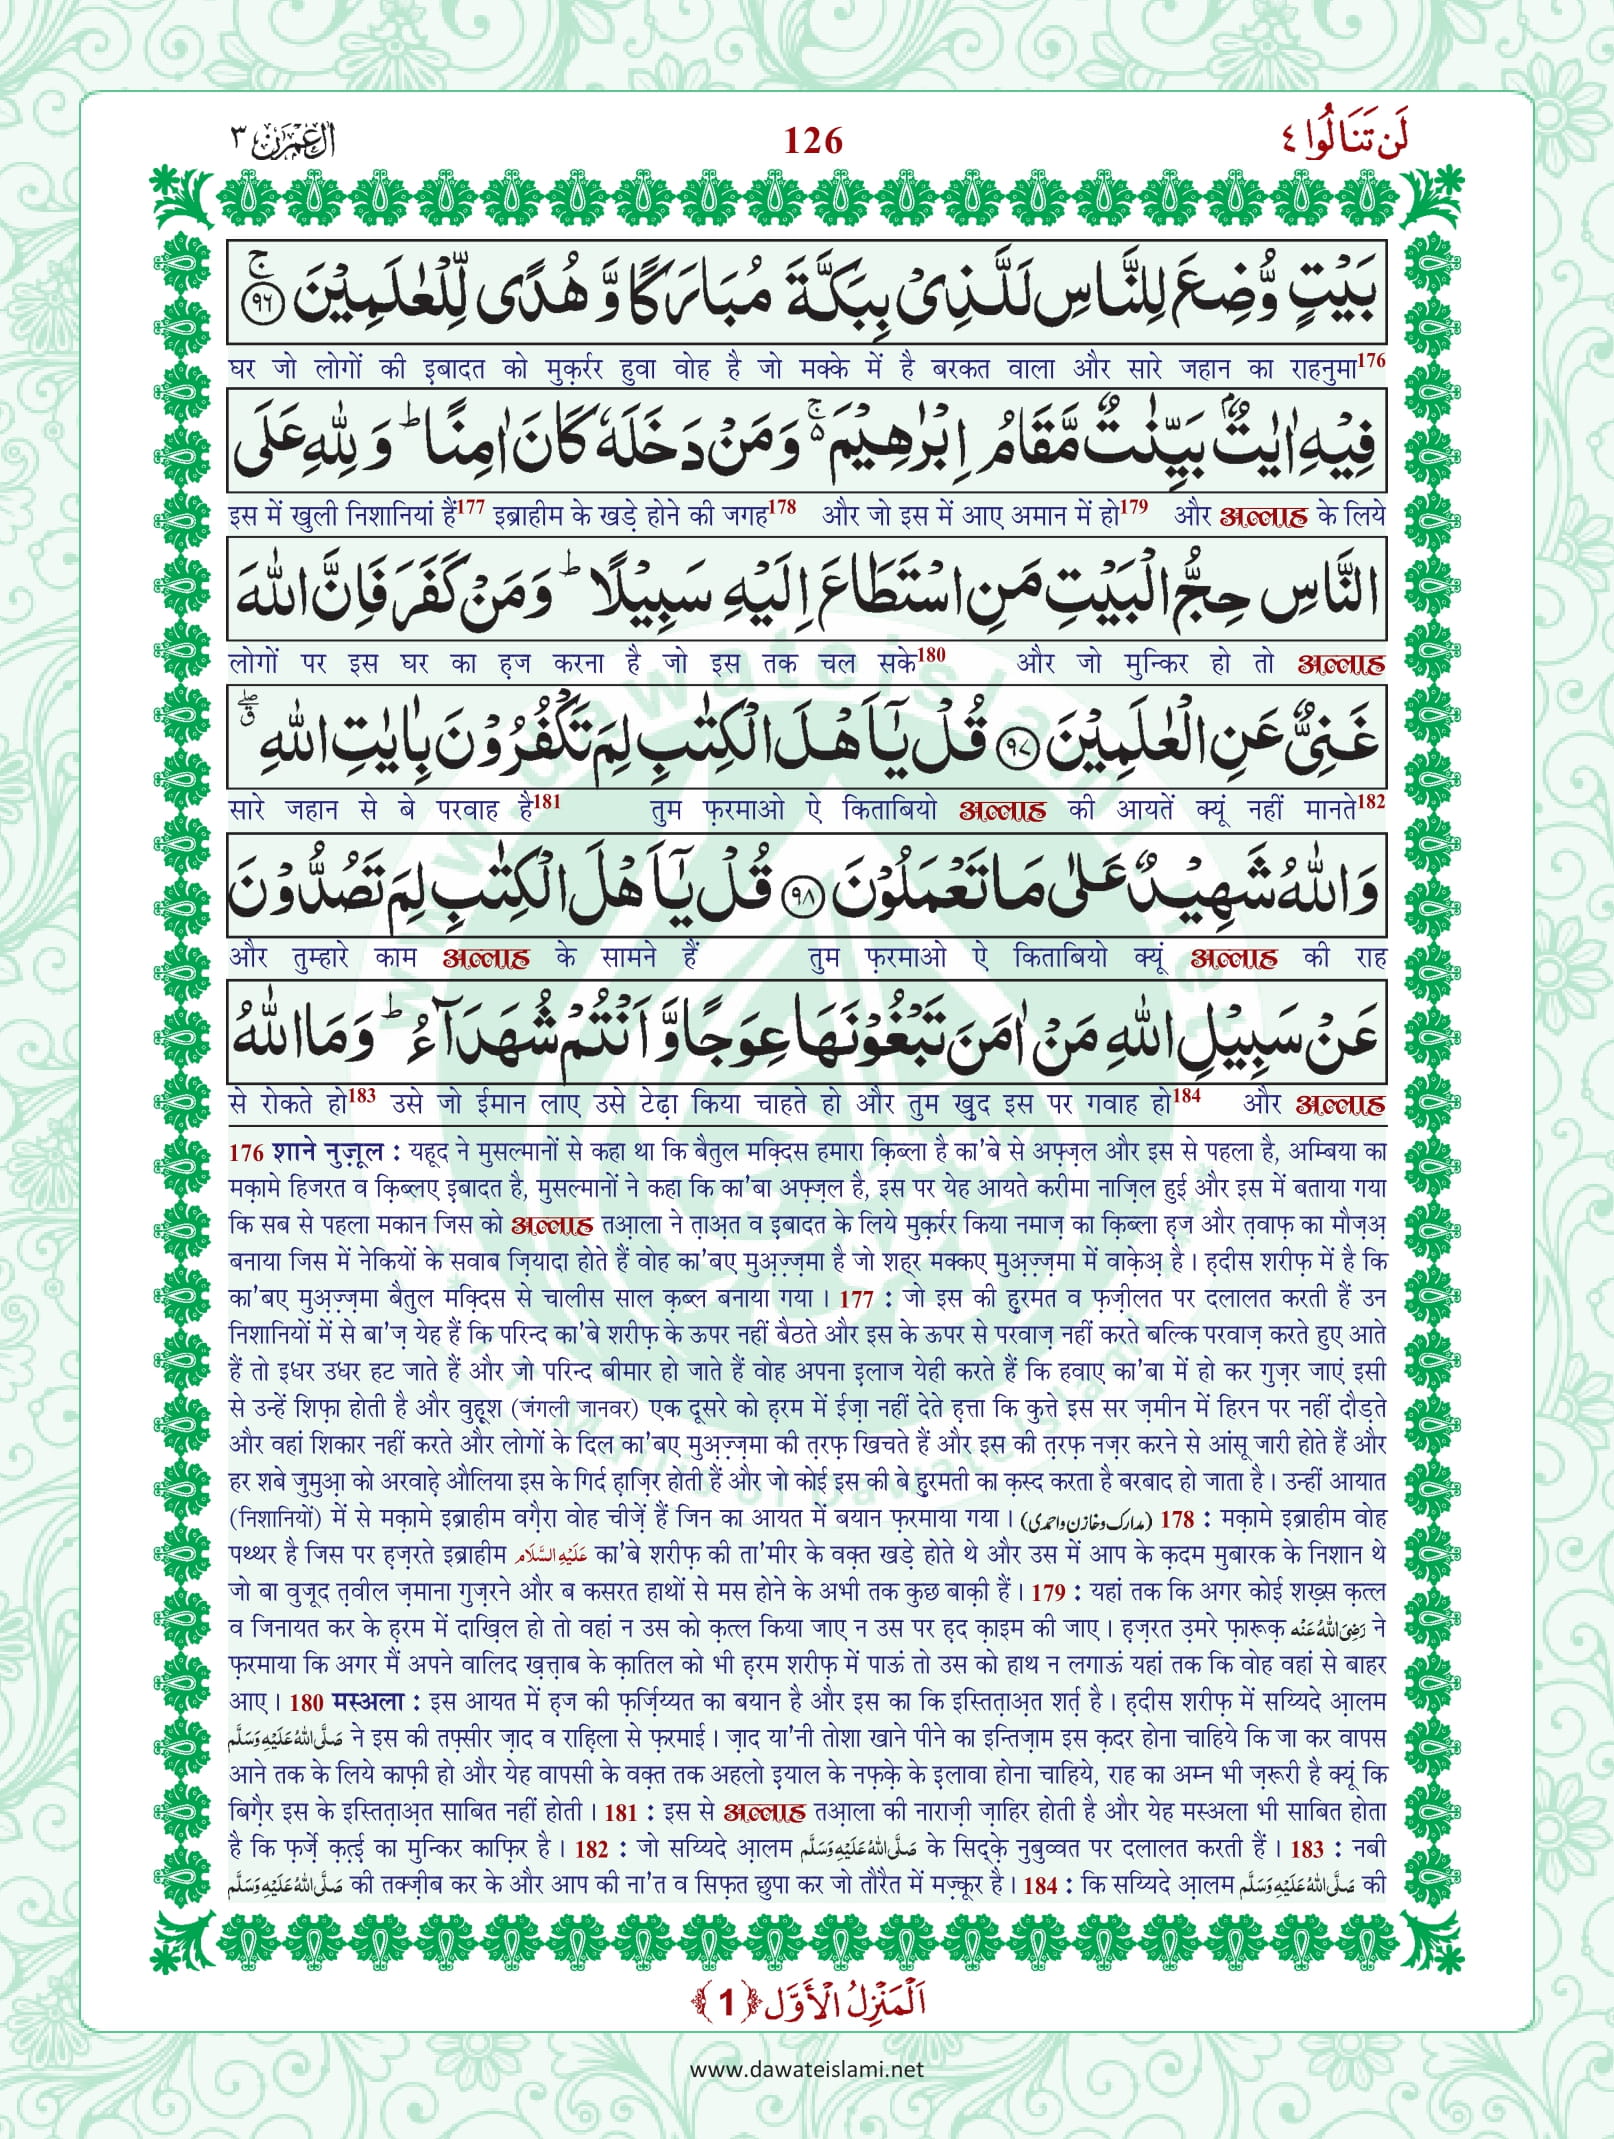 اٰل عمرٰن ٣
126
لَنْ تَنَالُوا ٤
بَیْتٍ وُّضِعَ لِلنَّاسِ لَلَّذِیْ بِبَكَّةَ مُبٰرَكًا وَّ هُدًى لِّلْعٰلَمِیْنَۚ ﴿٩٦﴾
घर जो लोगों की इबादत को मुक़र्रर हुवा वोह है जो मक्के में है बरकत वाला और सारे जहान का राहनुमा176
فِیْهِ اٰیٰتٌۢ بَیِّنٰتٌ مَّقَامُ اِبْرٰهِیْمَ ۚ۬ وَ مَنْ دَخَلَهٗ كَانَ اٰمِنًاؕ وَ لِلّٰهِ عَلَى
इस में खुली निशानियां हैं177 इब्राहीम के खड़े होने की जगह178 और जो इस में आए अमान में हो179 और अल्लाह के लिये
النَّاسِ حِجُّ الْبَیْتِ مَنِ اسْتَطَاعَ اِلَیْهِ سَبِیْلًاؕ وَ مَنْ كَفَرَ فَاِنَّ اللّٰهَ
लोगों पर इस घर का ह़ज करना है जो इस तक चल सके180 और जो मुन्किर हो तो अल्लाह
غَنِیٌّ عَنِ الْعٰلَمِیْنَ ﴿٩٧﴾ قُلْ یٰۤاَهْلَ الْكِتٰبِ لِمَ تَكْفُرُوْنَ بِاٰیٰتِ اللّٰهِ ۖۗ
सारे जहान से बे परवाह है181 तुम फ़रमाओ ऐ किताबियो अल्लाह की आयतें क्यूं नहीं मानते182
وَ اللّٰهُ شَهِیْدٌ عَلٰى مَا تَعْمَلُوْنَ ﴿٩٨﴾ قُلْ یٰۤاَهْلَ الْكِتٰبِ لِمَ تَصُدُّوْنَ
और तुम्हारे काम अल्लाह के सामने हैं तुम फ़रमाओ ऐ किताबियो क्यूं अल्लाह की राह
عَنْ سَبِیْلِ اللّٰهِ مَنْ اٰمَنَ تَبْغُوْنَهَا عِوَجًا وَّ اَنْتُمْ شُهَدَآءُؕ وَ مَا اللّٰهُ
से रोकते हो183 उसे जो ईमान लाए उसे टेढ़ा किया चाहते हो और तुम ख़ुद इस पर गवाह हो184 और अल्लाह
176 शाने नुज़ूल : यहूद ने मुसल्मानों से कहा था कि बैतुल मक़्दिस हमारा क़िब्ला है का'बे से अफ़्ज़ल और इस से पहला है, अम्बिया का
मक़ामे हिजरत व क़िब्लए इबादत है, मुसल्मानों ने कहा कि का'बा अफ़्ज़ल है, इस पर येह आयते करीमा नाज़िल हुई और इस में बताया गया
कि सब से पहला मकान जिस को अल्लाह तआ़ला ने ता़अ़त व इबादत के लिये मुक़र्रर किया नमाज़ का क़िब्ला ह़ज और त़वाफ़ का मौज़अ़
बनाया जिस में नेकियों के सवाब ज़ियादा होते हैं वोह का'बए मुअ़ज़्ज़मा है जो शहर मक्कए मुअ़ज़्ज़मा में वाक़ेअ़ है। ह़दीस शरीफ़ में है कि
का'बए मुअ़ज़्ज़मा बैतुल मक़्दिस से चालीस साल क़ब्ल बनाया गया। 177 : जो इस की ह़ुरमत व फ़ज़ीलत पर दलालत करती हैं उन
निशानियों में से बा'ज़ येह हैं कि परिन्द का'बे शरीफ़ के ऊपर नहीं बैठते और इस के ऊपर से परवाज़ नहीं करते बल्कि परवाज़ करते हुए आते
हैं तो इधर उधर हट जाते हैं और जो परिन्द बीमार हो जाते हैं वोह अपना इलाज येही करते हैं कि हवाए का'बा में हो कर गुज़र जाएं इसी
से उन्हें शिफ़ा होती है और वुह़ूश (जंगली जानवर) एक दूसरे को ह़रम में ईज़ा नहीं देते ह़त्ता कि कुत्ते इस सर ज़मीन में हिरन पर नहीं दौड़ते
और वहां शिकार नहीं करते और लोगों के दिल का'बए मुअ़ज़्ज़मा की त़रफ़ खिचते हैं और इस की त़रफ़ नज़र करने से आंसू जारी होते हैं और
हर शबे जुमुआ़ को अरवाहे़ औलिया इस के गिर्द ह़ाज़िर होती हैं और जो कोई इस की बे ह़ुरमती का क़स्द करता है बरबाद हो जाता है। उन्हीं आयात
(निशानियों) में से मक़ामे इब्राहीम वग़ैरा वोह चीज़ें हैं जिन का आयत में बयान फ़रमाया गया। (مدارک وخازن واحمدی) 178 : मक़ामे इब्राहीम वोह
पथ्थर है जिस पर ह़ज़रते इब्राहीम عَلَیْہِ السَّلَام का'बे शरीफ़ की ता'मीर के वक़्त खड़े होते थे और उस में आप के क़दम मुबारक के निशान थे
जो बा वुजूद त़वील ज़माना गुज़रने और ब कसरत हाथों से मस होने के अभी तक कुछ बाक़ी हैं। 179 : यहां तक कि अगर कोई शख़्स क़त्ल
व जिनायत कर के ह़रम में दाख़िल हो तो वहां न उस को क़त्ल किया जाए न उस पर ह़द क़ाइम की जाए। ह़ज़रत उ़मरे फ़ारूक़ رَضِیَ اللّٰهُ عَنْه ने
फ़रमाया कि अगर मैं अपने वालिद ख़त़्त़ाब के क़ातिल को भी ह़रम शरीफ़ में पाऊं तो उस को हाथ न लगाऊं यहां तक कि वोह वहां से बाहर
आए। 180 मस्अला : इस आयत में ह़ज की फ़र्ज़िय्यत का बयान है और इस का कि इस्तिता़अ़त शर्त़ है। ह़दीस शरीफ़ में सय्यिदे आ़लम
صَلَّی اللّٰهُ عَلَیْهِ وَسَلَّم ने इस की तफ़्सीर ज़ाद व राह़िला से फ़रमाई। ज़ाद या'नी तोशा खाने पीने का इन्तिज़ाम इस क़दर होना चाहिये कि जा कर वापस
आने तक के लिये काफ़ी हो और येह वापसी के वक़्त तक अहलो इ़याल के नफ़क़े के इलावा होना चाहिये, राह का अम्न भी ज़रूरी है क्यूं कि
बिग़ैर इस के इस्तिता़अ़त साबित नहीं होती। 181 : इस से अल्लाह तआ़ला की नाराज़ी ज़ाहिर होती है और येह मस्अला भी साबित होता
है कि फ़र्ज़े क़त़्ई़ का मुन्किर काफ़िर है। 182 : जो सय्यिदे आ़लम صَلَّی اللّٰهُ عَلَیْهِ وَسَلَّم के सिद्क़े नुबुव्वत पर दलालत करती हैं। 183 : नबी
صَلَّی اللّٰهُ عَلَیْهِ وَسَلَّم की तक्ज़ीब कर के और आप की ना'त व सिफ़त छुपा कर जो तौरैत में मज़्कूर है। 184 : कि सय्यिदे आ़लम صَلَّی اللّٰهُ عَلَیْهِ وَسَلَّم की
اَلْمَنْزِلُ الْاَوَّل ﴿1﴾
www.dawateislami.net